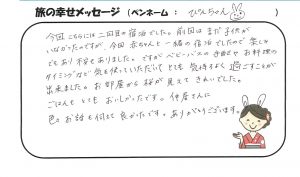 旅の幸せメッセージ（ペンネーム： ぴょんちゃん ）
今回こちらには二回目の宿泊でした。前回はまだ子供が
いなかったのですが、今回赤ちゃんと一緒の宿泊でしたので楽しみ
でもあり不安もありました。ですがベビーバスの手配やお料理の
タイミングなど気を使っていただいてとても気持ちよく過ごすことが
出来ました。お部屋から桜が見えてきれいでした。
ごはんもとてもおいしかったです。仲居さんに
色々お話も伺えて良かったです。ありがとうございます。